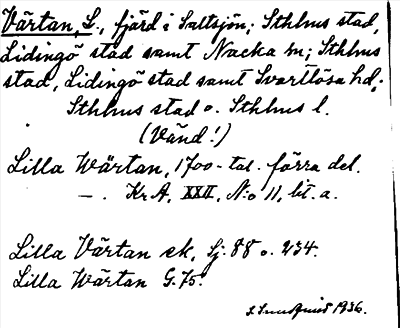 Värtan, L., fjärd i Saltsjön; Sthlms stad,
Lidingö stad samt Nacka sn; Sthlms
stad, Lidingö stad samt Svartlösa hd;
Sthlms stad o. Sthlms l.
(Vänd!)
Lilla Wärtan, 1700-tal. förra del.
—. Kr.A, XXII, N:o 11, lit. a.
Lilla Värtan ek, Sj. 88 o. 234.
Lilla Wärtan G. 75.
1936.